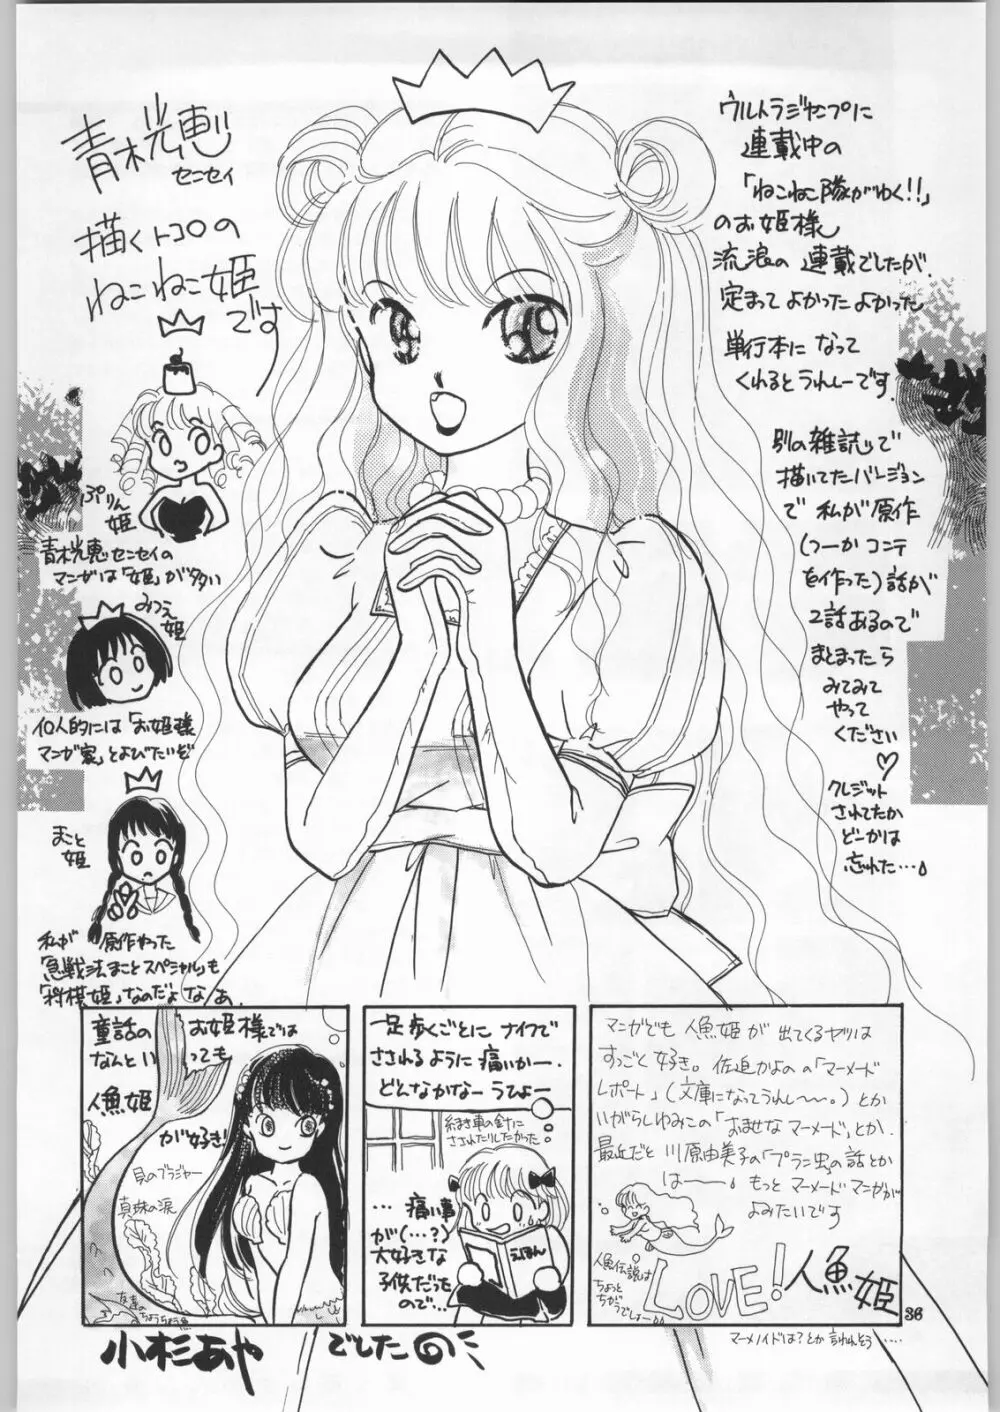 青木光恵
センセイ
描くトコロの
ねこねこ姫
です
ウルトラジャンプに
連載中の
「ねこねこ隊がゆく!!」
のお姫様
流浪の連載でしたが、
定まってよかったよかった
単行本になって
くれるとうれしーです
別の雑誌で
描いてたバージョン
で私が原作
(つーかコンテ
を作った)話が
2話あるので
まとまったら
みてみて
やって
ください
クレジット
されてたか
どーかは
忘れた…
ぷりん
姫
青木光恵センセイの
マンガは「姫」が多い
みつえ
姫
個人的には「お姫様
マンガ家」とよびたいぞ
まこと
姫
私が原作やった
「急戦法まことスペシャル」も
「将棋姫」なのだよなあ
童話のお姫様では
なんといっても
人魚姫
が好き!
貝のブラジャー
真珠の涙
一足歩くごとにナイフで
さされるように痛いかー
どんなかなーうひょー
糸つむぎ車の針に
さされたりしたかった
…痛い事
が(…?)
大好きな
子供だった
ので…
えほん
マンガでも人魚姫が出てくるヤツは
すっごく好き。佐迫かよのの「マーメード
レポート」(文庫になってうれし〜〜。)とか
いがらしゆみこの「おませなマーメード」とか
最近だと川原由美子の「プラン虫」の話とか
は――もっとマーメードマンガが
よみたいです
人魚伝説は
ちょっと
ちがうでしょー
LOVE!人魚姫
36
マーメノイドは?とか言われそう……
小杉あや でしたの